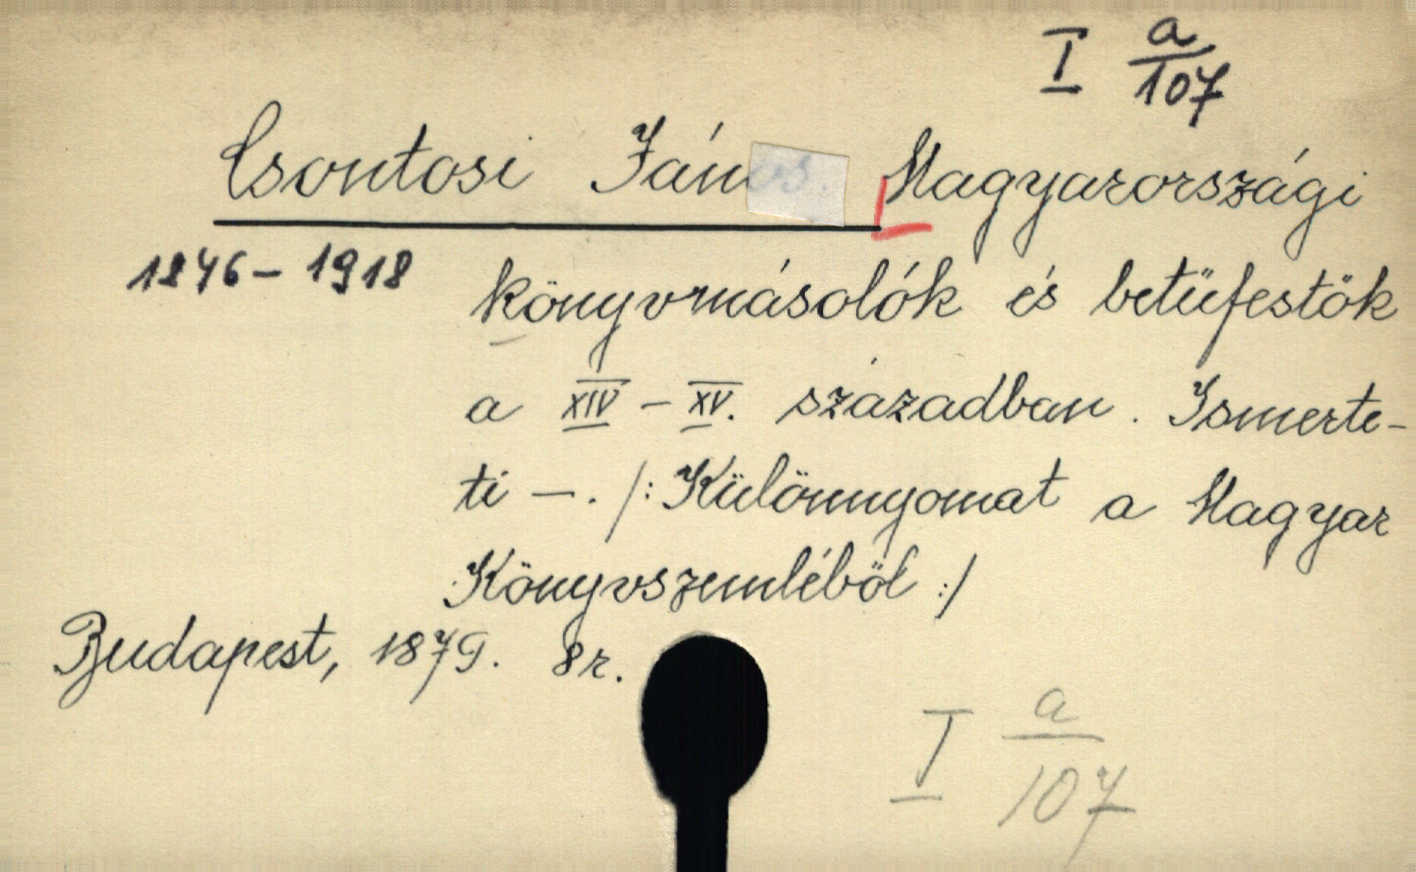 I a/107
Csontosi János. Magyarországi
1846-1918
könyvmásolók és betüfestök
a XIV - XV. században. Ismerte-
ti -. /: Különnyomat a Magyar
Könyvszemléböl :/
Budapest, 1879. 8r.
I a/107